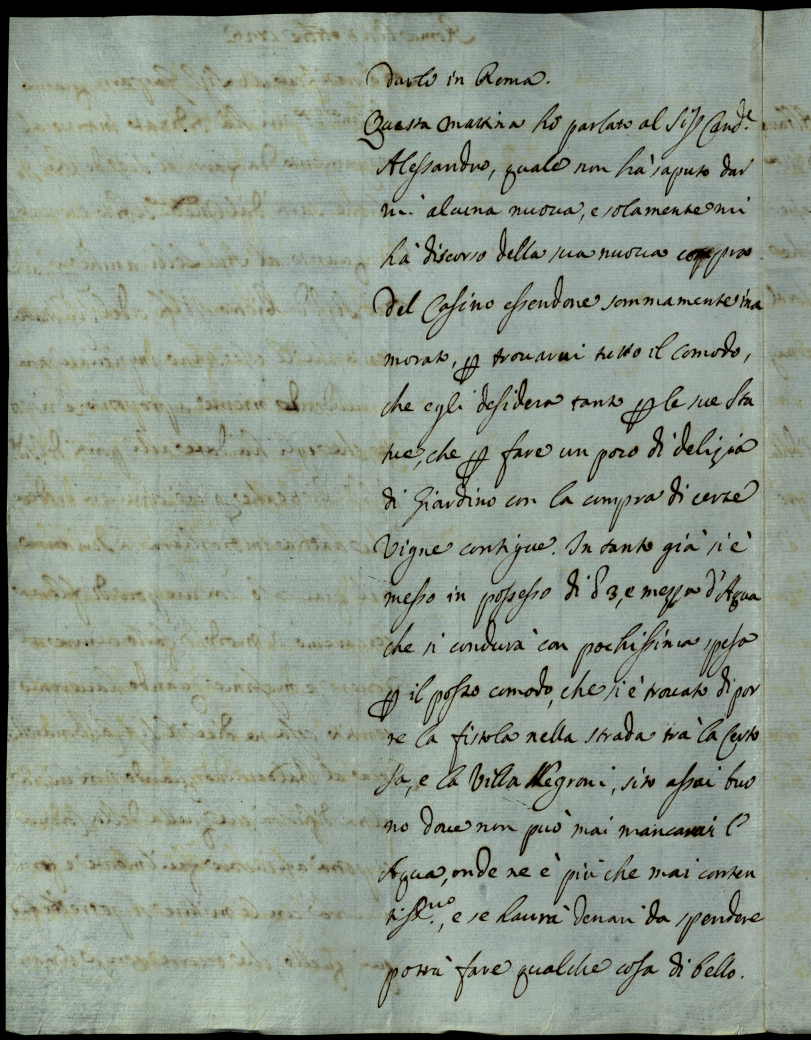 darlo in Roma.
Questa mattina hò parlato al Sig.r Card.e
Alessandro, quale non hà saputo dar
mi alcuna nuova, e solamente mi
hà discorso della sua nuova compra
del Casino essendone sommamente ina
morato, p trovarvi tutto il comodo,
che egli desidera tanto p le sue Sta
tue, che p fare un poco di delizia
di Giardino con la compra di certe
Vigne contigue. In tanto già si è
messo in possesso di 3, e mezza d'Aqua
che si condurà con pochissima spesa
p il posto comodo, che si è trovato di por
re la fistola nella strada trà la Certo
sa, e la Villa Negroni, sito assai buo
no dove non può mai mancarvi l'
Aqua, onde ne è più che mai conten
tiss.mo, e se haurà denari da spendere
potrà fare qualche cosa di bello.